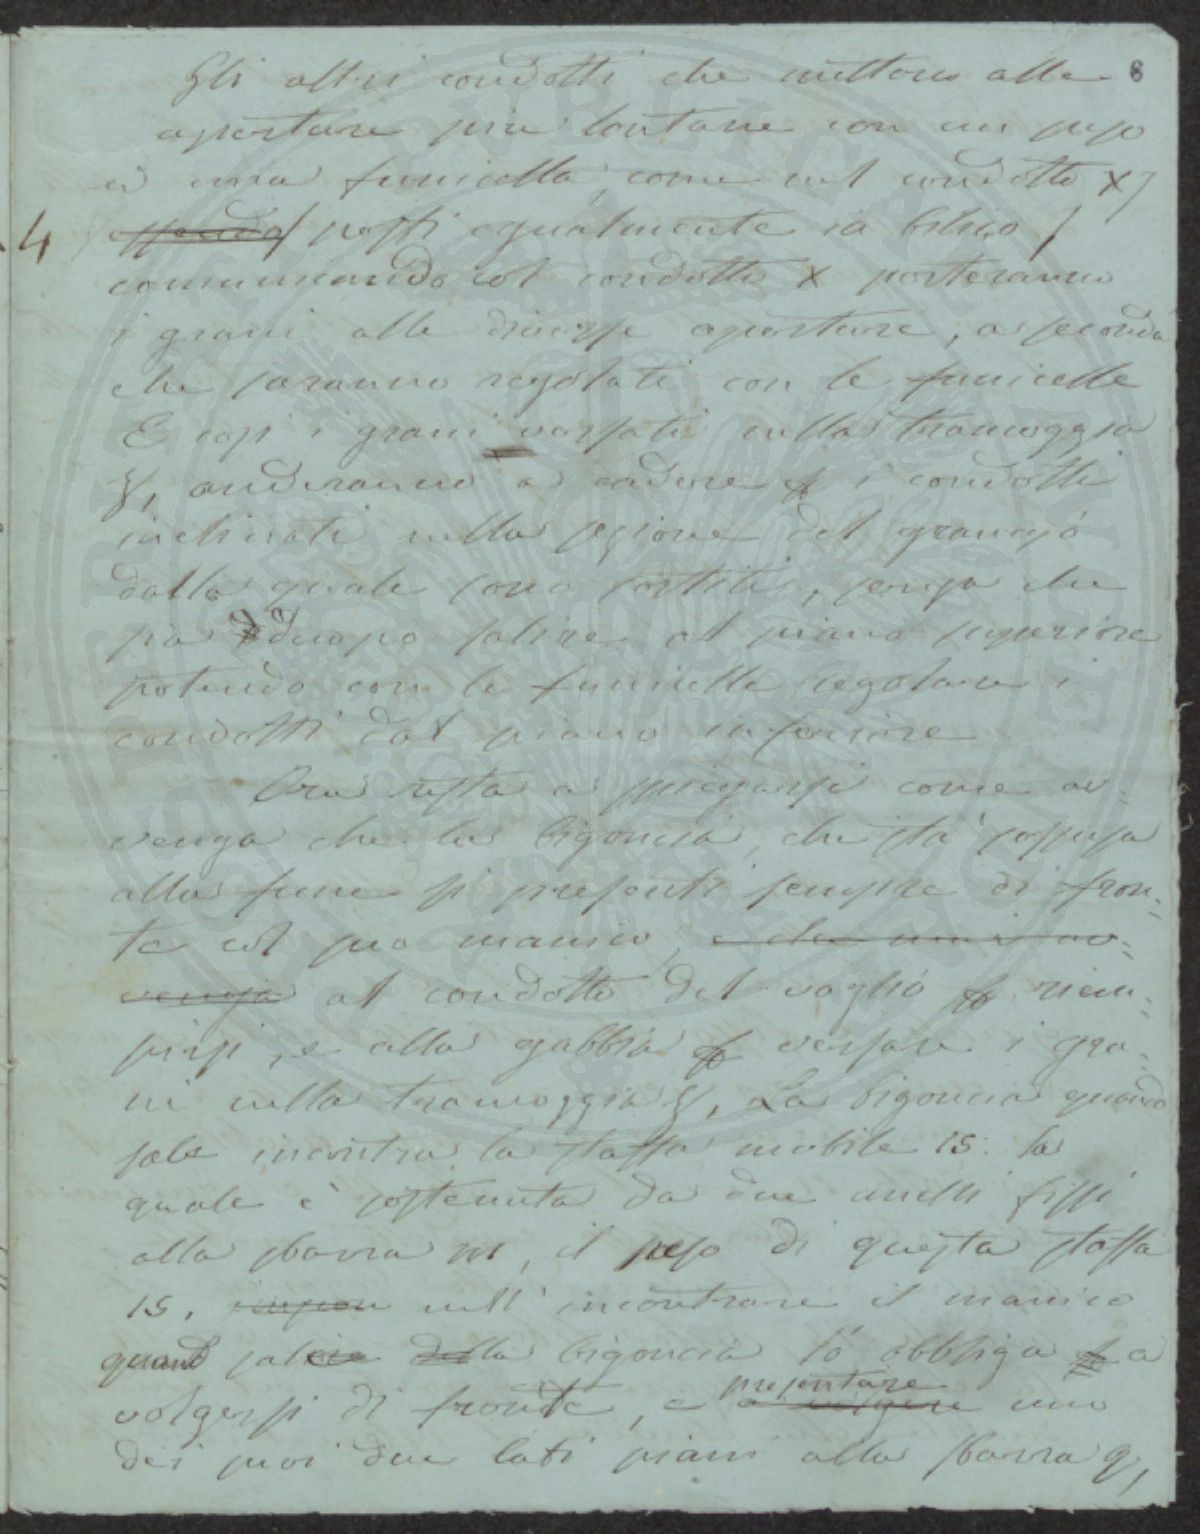 8
Gli altri condotti che mettono alle
aperture più lontane con un peso
ed una funicella, come nel condotto X,
4 essendo posti egualmente in bilico,
communicando col condotto X porteranno
i grani alle diverse aperture, a seconda
che saranno regolati con le funicelle
E così i grani versati nella tramoggia
anderanno a cadere i condotti
inclinati nella regione del granajo
dalla quale sono sortiti, senza che
sia d'duopo salire al piano superiore
potendo con le funicelle regolare i
condotti dal piano inferiore
Ora resta a spiegarsi come av-
venga che la bigoncia, che sta sospesa
alla fune si presenti sempre di fron-
te col suo manico, e che
venga al condotto del vaglio riem-
pirsi, e alla gabbia versare i gra-
ni nella tramoggia, La bigoncia quando
sale incontra la staffa mobile 15. la
quale è sostenuta da due anelli fissi
alla sbarra m, il peso di questa staffa
15. nell' incontrare il manico
quand sale la bigoncia lo obbliga a
volgersi di fronte, e a volgere presentare uno
dei suoi due lati piani alla sbarra q,